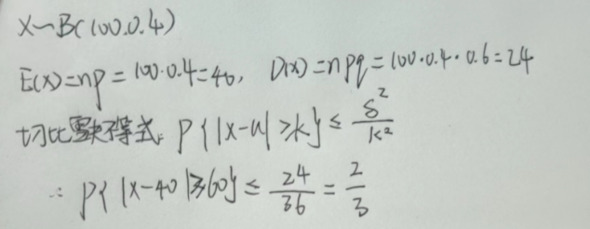 X~B(100.0.4)
E(x)=np=100·0.4=40, D(x)=npq=100·0.4·0.6=24
切比雪夫不等式: P{|X-u|≥k}≤δ²/k²
∴ P{|X-40|≥60}≤24/36=2/3